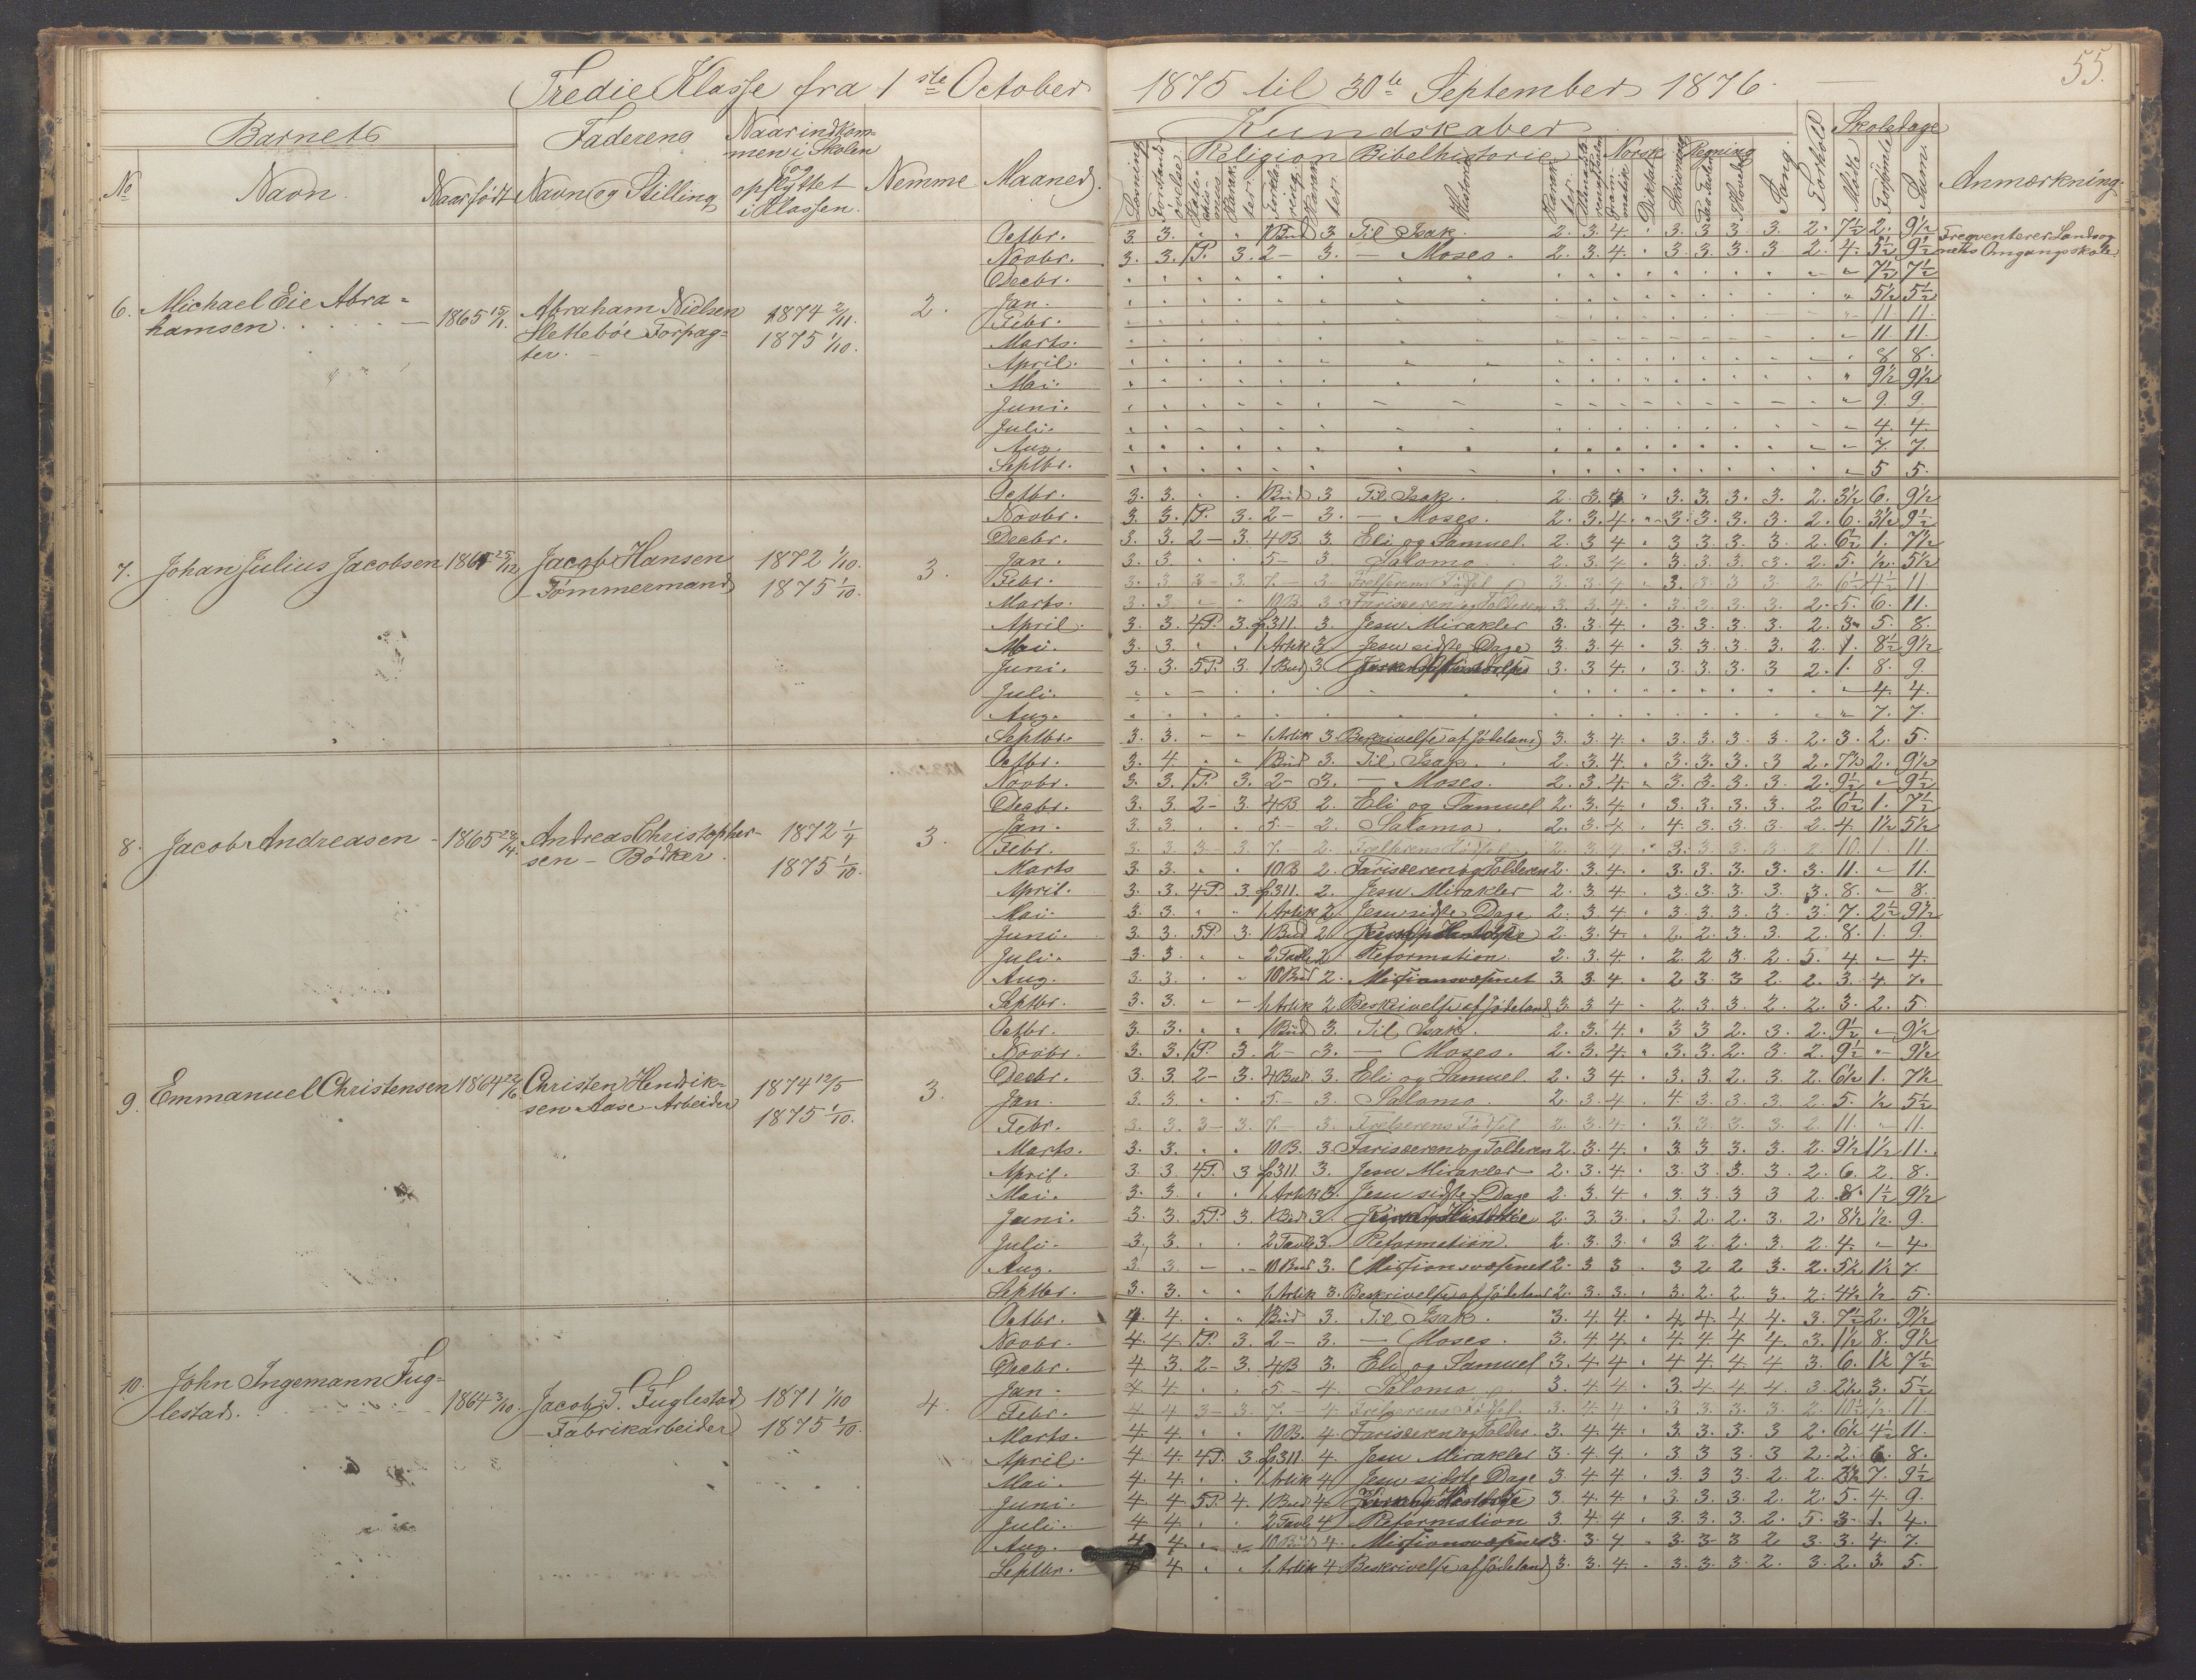 55.
Tredie Klasse fra 1ste October 1875 til 30te September 1876.
Barnets Faderens Naar indkom-
men i Skolen
og
opflyttet
i Klassen. Nemme Maaned. Kundskaber Forhold Skoledage Anmærkning.
No Navn. Naar født Navn og Stilling Religion Bibelhistorie Norsk Regning Sang. Mødte Forsømte Sum.
Octbr. 3. 3. 1 Bud 3 Til Isak. 2. 3. 4. 3. 3. 3. 3. 2. 7½ 2. 9½ Freqventerer Landsog-
Novbr. 3. 3. 1P. 3. 2 – 3. — Moses. 2. 3. 4. 3. 3. 3. 3 2. 4. 5½ 9½ nets Omgangsskole
Decbr. 7½ 7½
6. Michael Eie Abra-
hamsen. 1865 15/1. Abraham Nielsen
Slettebøe Forpag-
ter. 1874 2/11.
1875 1/10. 2.
Jan. 5½ 5½
Febr. 11 11.
Marts. 11 11.
April. 8 8.
Mai. 9½ 9½
Juni. 9. 9.
Juli. 4. 4.
Aug. 7. 7.
Septbr. 5 5.
7. Johan Julius Jacobsen 1865 25/12 Jacob Hansen
– Tømmermand 1872 1/10.
1875 1/10. 3.
Octbr. 3. 3. 1 Bud 3 Til Isak. 2. 3. 4. 3. 3. 3. 3. 2. 3½ 6. 9½
Novbr. 3. 3. 1P. 3. 2 – 3. — Moses. 2. 3. 4. 3. 3. 3. 3. 2. 6. 3½ 9½
Decbr. 3. 3. 2 – 3. 4 B 3. Eli og Samuel. 2. 3 4 3 3. 3. 3. 2. 6½ 1. 7½
Jan. 3. 3 5 – 3. Salomo. 2. 3. 4. 3. 3. 3. 3. 2. 5. ½. 5½
Febr. 3. 3. 3 – 3. 7. – 3. Frelserens Fødsel 3. 3. 4 3. 3 3 3 2. 6½ 4½ 11.
Marts. 3. 3. 10 B. 3. Farisæeren og Tolderen 3. 3. 4. 3. 3. 3. 3. 2. 5. 6. 11.
April. 3. 3. 4P. 3. f. 311. 3. Jesu Mirakler 3. 3. 4. 3. 3. 3. 3. 2. 3 5. 8.
Mai. 3. 3. 1 Artik 3 Jesu sidste Dage 3. 3. 4. 3. 3. 3. 3. 2. 1. 8½ 9½
Juni. 3. 3. 5P. 3. 1 Bud 3 3. 3 4. 3. 3. 3. 3 2. 1. 8. 9
Juli. 4. 4.
Aug. 7. 7.
Septbr. 3. 3. 1. Artik 3. Beskrivelse af Jødeland 3. 3. 4. 3. 3. 3. 3. 2. 3. 2. 5.
8. Jacob Andreasen 1865 28/4. Andreas Christopher-
sen – Bødker. 1872 1/4
1875 1/10. 3.
Octbr. 3. 4. 1 Bud 3. Til Isak. 2. 3. 4. 3. 3. 3. 3 2. 7½ 2. 9½
Novbr. 3. 3. 1P. 3. 2 – 3. — Moses. 2. 3. 4. 3. 3. 3. 3. 2. 9½ 9½
Decbr. 3. 3. 2 – 3. 4 B 2. Eli og Samuel 2. 3. 4. 3. 3. 3. 3. 2 6½ 1. 7½
Jan. 3. 3. 5 – 2. Salomo. 2. 3. 4 4. 3. 3. 3. 2. 4. 1½ 5½
Febr. 3. 3. 3 – 3. 7. – 2. Frelserens Fødsel 2. 3. 4. 3. 3. 3. 3. 2. 10. 1. 11.
Marts 3. 3. 10 B 2. Farisæeren og Tolderen 2. 3. 4. 3. 3. 3. 3. 3. 11. 11.
April. 3. 3. 4P. 3. f. 311. 2. Jesu Mirakler 2. 3. 4 3. 3. 3. 3. 3. 8. 8.
Mai. 3. 3. 1 Artik 2. Jesu sidste Dage 2. 3. 4. 3. 3. 3. 3. 3. 7. 2½ 9½
Juni. 3. 3. 5P. 3. 1 Bud 2. 2. 3. 4. 2. 2. 3. 3. 2. 8. 1. 9.
Juli. 3. 3. 2 Tavle 2 Reformation. 2. 3. 4. 2. 2 3. 2. 5. 4. 4.
Aug. 3. 3. 10 Bud 2. Missionsvæsenet 3. 3. 4. 2 3. 3 2 2. 3. 4. 7.
Septbr. 3. 3. 1. Artik 2 Beskrivelse af Jødeland 3. 3 4 2. 3. 3. 2. 2. 3. 2. 5
9. Emmanuel Christensen 1864 22/6 Christen Hendrik-
sen Aase – Arbeider 1874 12/5
1875 1/10. 3.
Octbr. 3. 3. 1 Bud 3. Til Isak. 2. 3. 4. 3 3 2. 3. 2. 9½ 9½
Novbr. 3. 3. 1P. 3. 2 – 3. — Moses. 2. 3. 4. 3. 3. 2. 3. 2. 9½ 9½
Decbr. 3. 3. 2 – 3. 4 Bud 3. Eli og Samuel. 2. 3 4. 3. 3. 2. 3. 2. 6½ 1. 7½
Jan. 3. 3. 5. – 3. Salomo. 2. 3. 4. 4 3. 3. 3. 2. 5. ½ 5½
Febr. 3. 3. 3 – 3. 7. – 3. Frelserens Fødsel 2. 3. 4. 3. 3. 3. 3. 2. 11. 11.
Marts. 3. 3. 10 B. 3 Farisæeren og Tolderen 2. 3. 4. 3. 3. 3. 3. 2. 9½ 1½ 11.
April. 3. 3. 4P. 3 f. 311 3. Jesu Mirakler 2. 3. 4. 3. 3. 3. 3. 2. 6. 2. 8.
Mai. 3. 3. 1 Artik 3. Jesu sidste Dage 2. 3. 4 3. 3. 3 3 2. 8. 1½ 9½
Juni. 3. 3. 5P. 3. 1 Bud 3. 2. 3 3. 3 2. 2. 3. 2. 8½ ½. 9.
Juli. 3. 3. 2 Tavle 3. Reformation. 2. 3. 3. 3. 2. 2. 3. 2. 4. 4
Aug. 3. 3 10 Bud 3. Missionsvæsenet 2. 3 3 3 2 2 3. 2. 5½ 1½ 7
Septbr. 3. 3. 1. Artik 3. Beskrivelse af Jødeland 2. 3. 3. 3. 2. 2. 3 2. 4½ ½ 5.
10. John Ingemann Fug-
lestad. 1864 3/10. Jacob T. Fuglestad
– Fabrikarbeider 1871 1/10
1875 1/10. 4.
Octbr. 4 4. 1 Bud 3. Til Isak. 3. 4 4. 4. 4. 4 4. 3. 7½ 2. 9½
Novbr. 4. 4. 1P. 3. 2 – 3. — Moses. 3. 4 4. 4. 4. 4 4. 3. 1½ 8. 9½
Decbr. 4 3. 2 – 3. 4 B 3. Eli og Samuel 3. 4. 4. 4 4. 4. 4 3. 6. 1½ 7½
Jan. 4 4. 5. – 4. Salomo. 3. 4. 4. 3. 4. 4 4. 3. 2½ 3. 5½
Febr. 4 4 3 – 3. 7. – 4 Frelserens Fødsel. 3. 4 4. 3. 3. 3. 3. 2. 10½ ½. 11.
Marts. 4 4. 10 B. 4. Farisæeren og Tolder. 3. 4. 4. 3. 3. 3. 3 2. 6½ 4½ 11.
April. 4 4. 4P. 3. f. 311. 4. Jesu Mirakler 3. 4. 4. 3 3 3. 3 2. 2. 6. 8.
Mai. 4 4. 1 Artik 4 Jesu sidste Dage 3. 4 4. 3. 3. 3. 2. 2. 2½ 7. 9½
Juni. 4. 4 5P. 4. 1 Bud 4. 3. 4. 4. 3. 3. 3. 2. 2. 5. 4. 9.
Juli. 4 4. 2 Tavle 4 Reformation 3. 4 4. 3. 3. 3 2. 5. 3. 1. 4.
Aug. 4 4. 10 Bud 4. Missionsvæsenet 3. 3. 4 3. 3. 3 2 3. 3. 4. 7.
Septbr. 4 4 1. Artik 4 Beskrivelse af Jødeland 3. 3. 4. 3. 3. 3. 2. 3. 2. 3. 5.